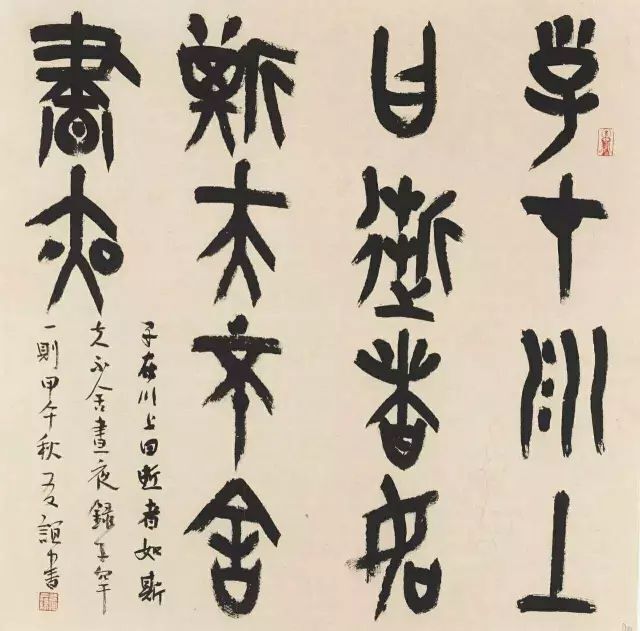 子在川上
曰逝者如
斯夫不舍
晝夜
子在川上曰逝者如斯
夫不舍晝夜錄子罕
一則甲午秋友誼書